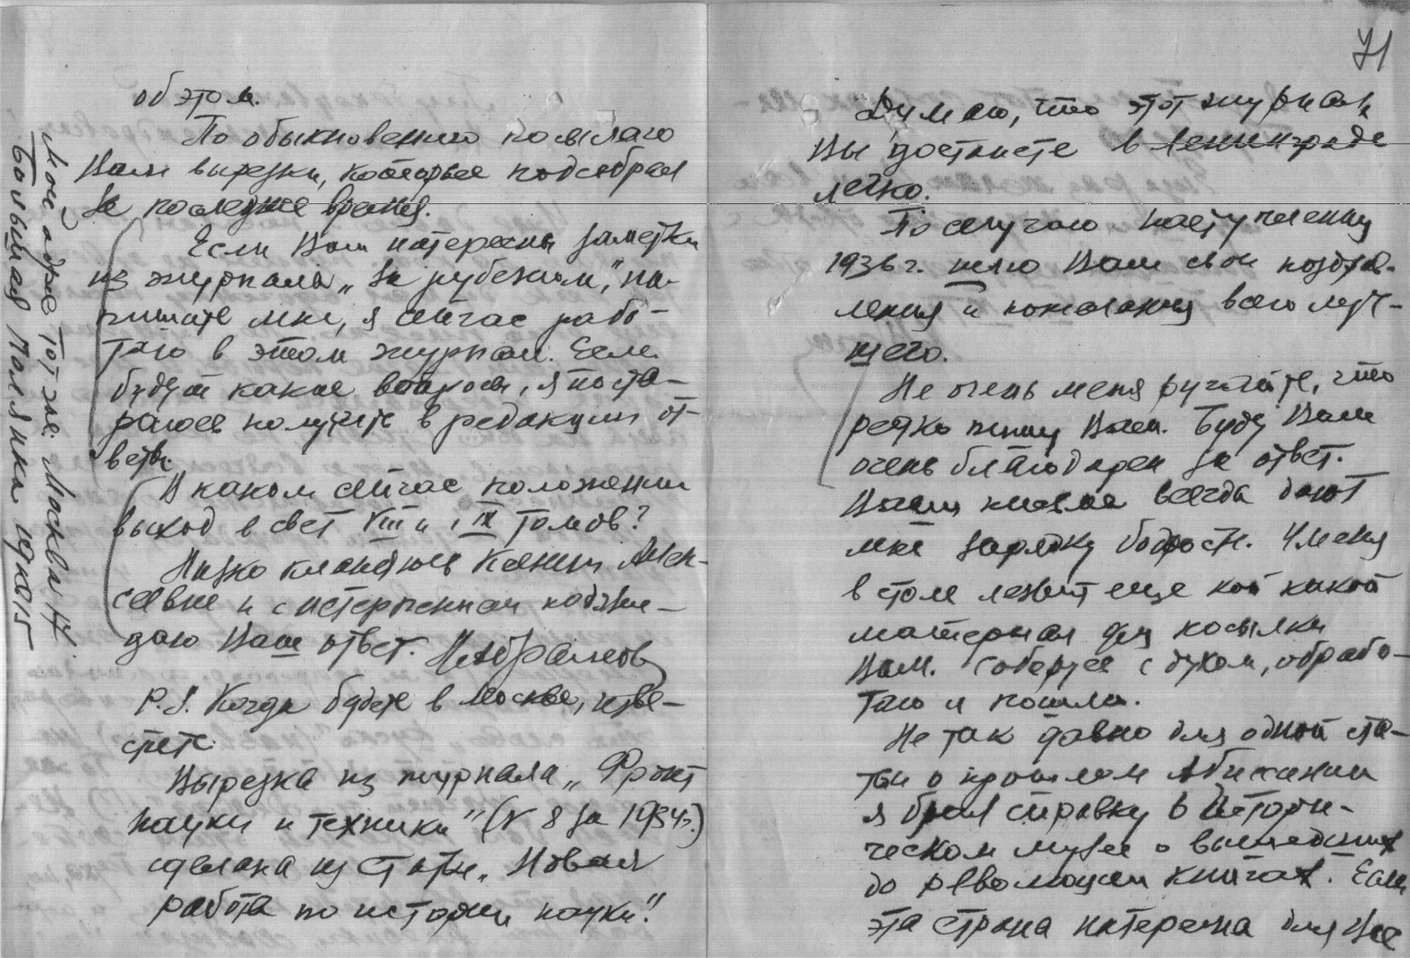 71
об этом.
По обыкновению посылаю
Вам вырезки, которые подсобрал
за последнее время.
Если Вам интересны заметки
из журнала „За рубежом", на-
пишите мне, я сейчас рабо-
таю в этом журнале. Если
будут какие вопросы, я поста-
раюсь получить в редакции от-
веты.
В каком сейчас положении
выход в свет VIII и IX томов?
Низко кланяюсь Ксении Алек-
сеевне и с нетерпением поджи-
даю Ваш ответ. Абрамов
P.S. Когда будете в Москве, изве-
стите.
Вырезка из журнала „Фронт
науки и техники" (№ 8 за 1934г.)
сделана из статьи „Новая
работа по истории науки".
Мой адрес тот же: Москва 17.
Большая Полянка
Думаю, что этот журнал
Вы достанете в Ленинграде
легко.
По случаю наступления
1936 г. шлю Вам свои поздрав-
ления и пожелания всего луч-
шего.
Не очень меня ругайте, что
редко пишу Вам. Буду Вам
очень благодарен за ответ.
Ваши письма всегда дают
мне зарядку бодрости. У меня
в столе лежит еще кой какой
материал для посылки
Вам. Соберусь с духом, обрабо-
таю и пошлю.
Не так давно для одной ста-
тьи о прошлом Абиссинии
я брал справку в Истори-
ческом музее о вышедших
до революции книгах. Если
эта страна интересна для Вас